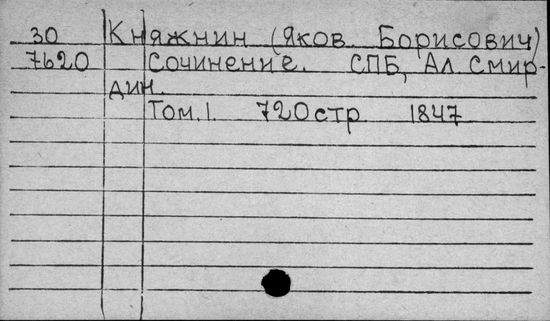 30 Княжнин (Яков Борисович)
7620 Сочинение. СПБ, Ал. Смир-
дин.
Том. 1. 720 стр. 1847